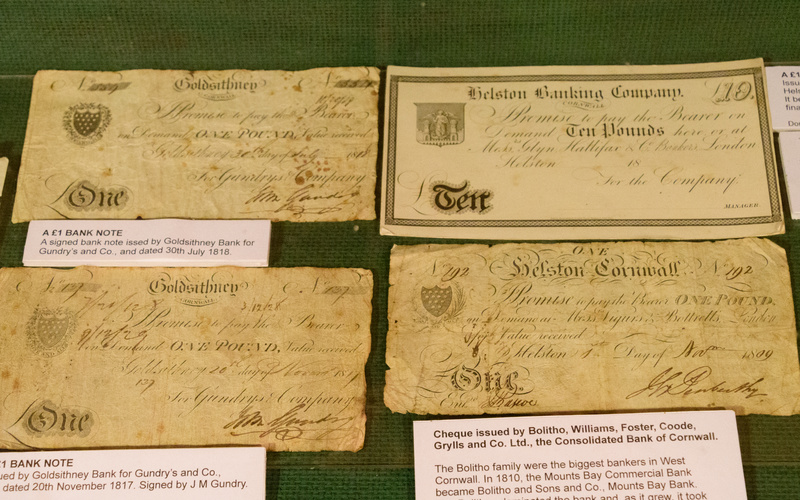 Goldsithney
I Promise to pay the Bearer
on Demand ONE POUND, Value received
Goldsithney 30th day of July 1818
For Gundrys & Company
£One
A £1 BANK NOTE
A signed bank note issued by Goldsithney Bank for
Gundry's and Co., and dated 30th July 1818.
Helston Banking Company. £10.
CORNWALL
I Promise to pay the Bearer on
Demand Ten Pounds here or at
Messrs Glyn Hallifax & Co. Bankers London
Helston 18
For the Company
£Ten
MANAGER.
A £1
Issu
Hels
It be
fina
Don
Goldsithney
CORNWALL
I Promise to pay the Bearer
on Demand ONE POUND, Value received
Goldsithney 20th day of 1817
For Gundrys & Company
£One
£1 BANK NOTE
ued by Goldsithney Bank for Gundry's and Co.,
dated 20th November 1817. Signed by J M Gundry.
ONE
No 792 Helston Cornwall No 792
I Promise to pay the Bearer ONE POUND
on Demand at Messrs London
Value received
Helston Day of Novr 1809
£One.
Cheque issued by Bolitho, Williams, Foster, Coode,
Grylls and Co. Ltd., the Consolidated Bank of Cornwall.
The Bolitho family were the biggest bankers in West
Cornwall. In 1810, the Mounts Bay Commercial Bank
became Bolitho and Sons and Co., Mounts Bay Bank.
the bank and, as it grew, it took